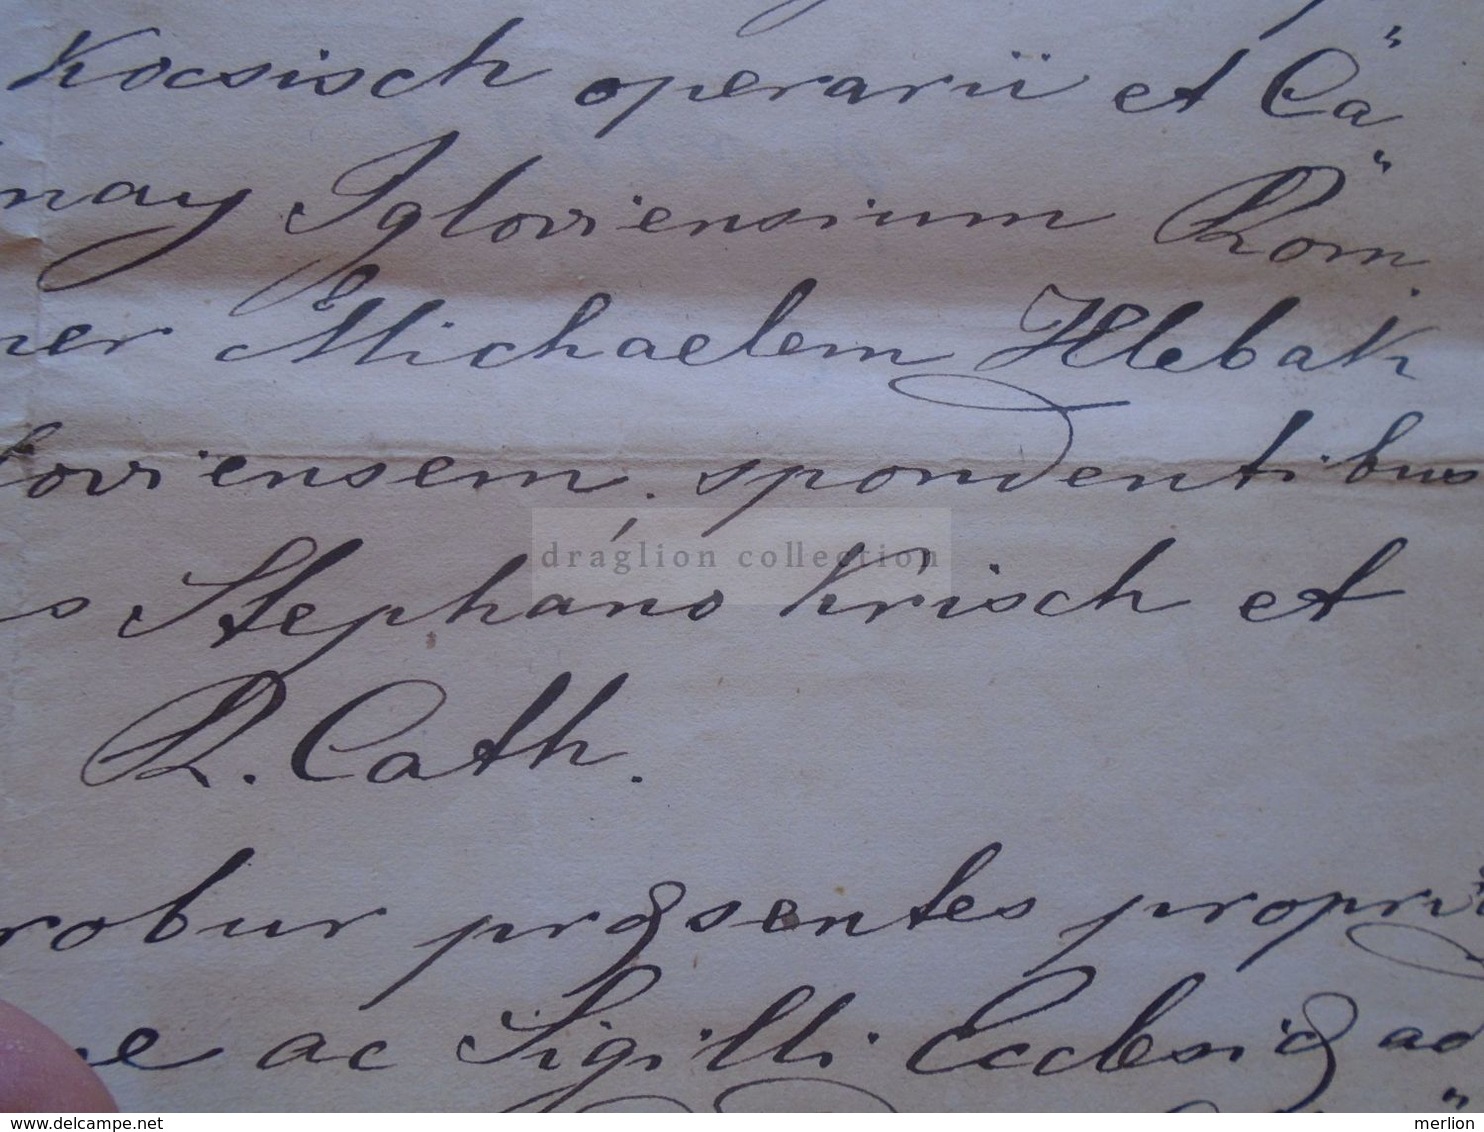 Kocsisch operarii et Ca"
nay Igloviensium Rom.
ner Michaelem Hlebak
loviensem, spondentibus
s Stepháno Krisch et
R. Cath.
robur præsentes propriæ
ne ac Sigilli Ecclesiæ ad
draglion collection
www.delcampe.net
merlion